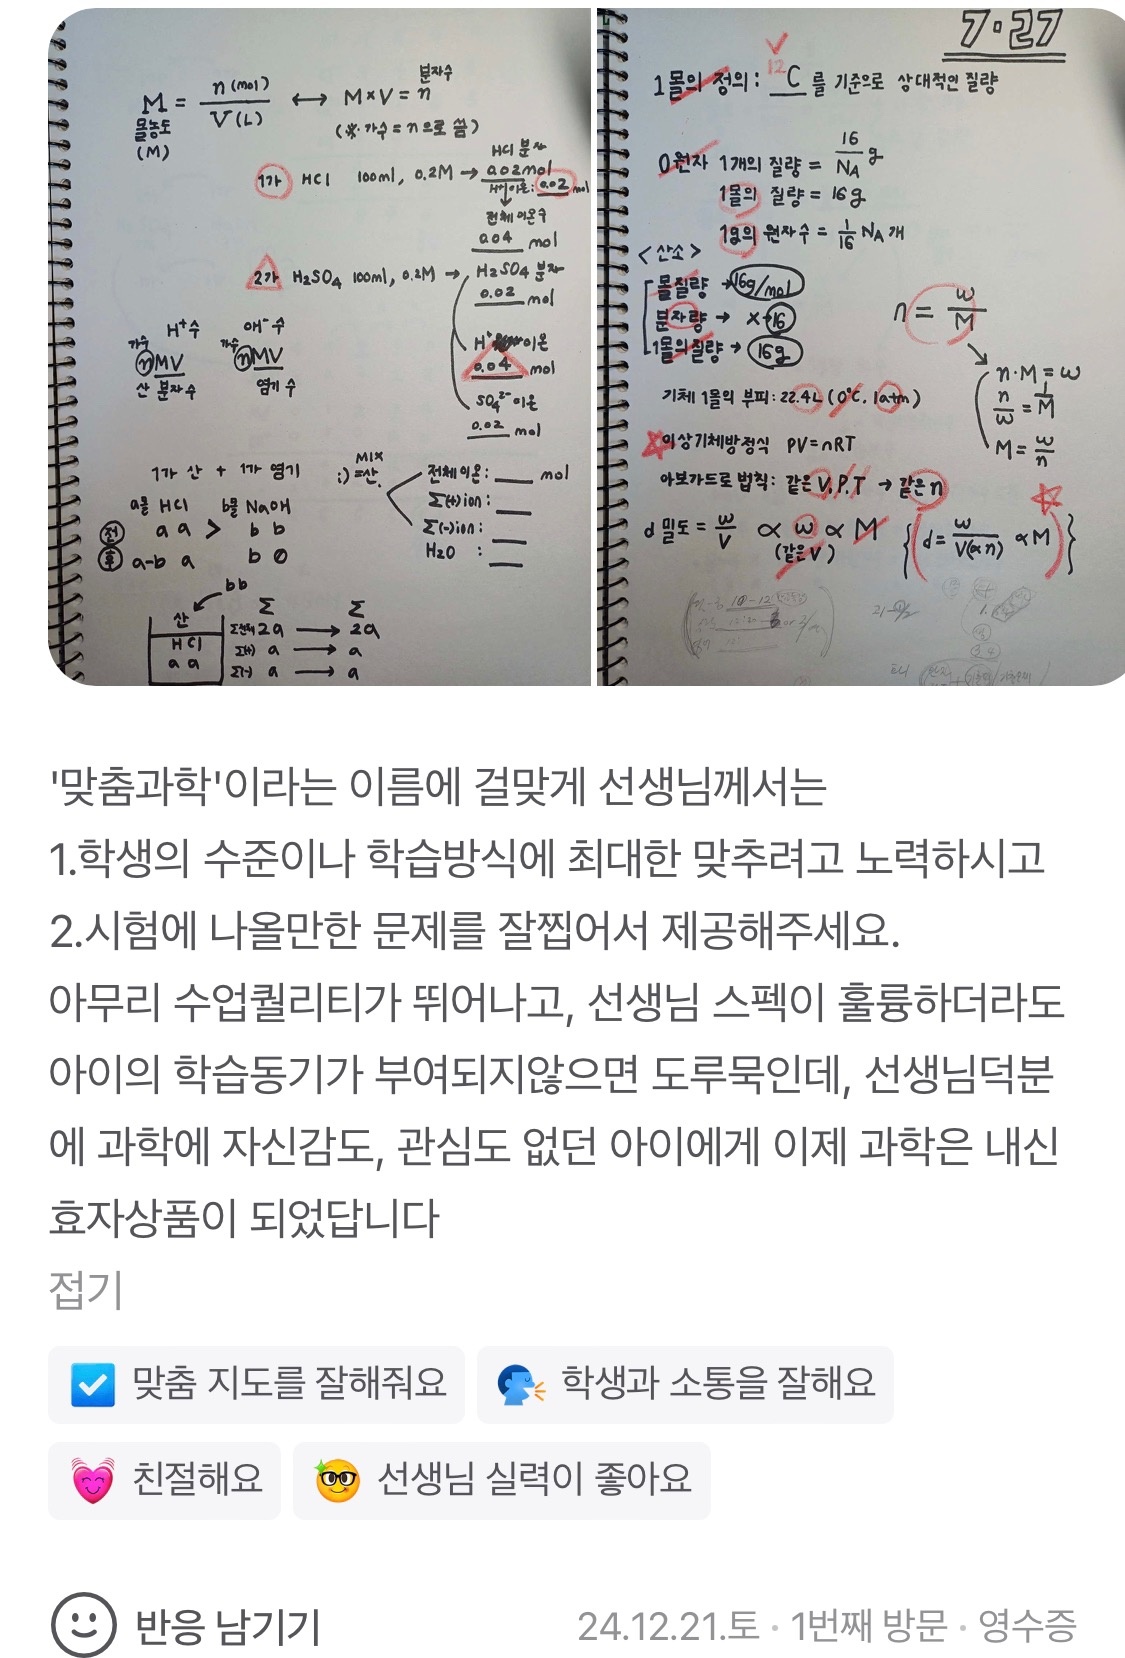 M = n (mol) / V (L) ↔ M×V = n
분자수
몰농도
(M)
(※ 가수 = n으로 씀)
1가 HCl 100ml, 0.2M →
HCl 분자
0.02mol
H⁺이온: 0.02 mol
전체이온수
0.04 mol
2가 H₂SO₄ 100ml, 0.2M → H₂SO₄ 분자
0.02 mol
H⁺ 이온
0.04 mol
SO₄²⁻이온
0.02 mol
가수 H⁺수
nMV
산 분자수
가수 OH⁻수
nMV
염기 수
1가 산 + 1가 염기
MIX
:) =산.
a몰 HCl b몰 NaOH
전 a a > b b
후 a-b a b 0
전체이온: ____ mol
Σ(+)ion: ____
Σ(-)ion: ____
H₂O : ____
산
bb
HCl
a a
Σ Σ
Σ전체 2a → 2a
Σ(+) a → a
Σ(-) a → a
7·27
1몰의 정의: ¹²C 를 기준으로 상대적인 질량
O원자 1개의 질량 = 16/NA g
1몰의 질량 = 16g
1g의 원자수 = 1/16 NA 개
<산소>
몰질량 → 16g/mol
분자량 → X 16
1몰의질량 → 16g
n = w/M
n·M = w
n/w = 1/M
M = w/n
기체 1몰의 부피: 22.4L (0°C, 1atm)
☆이상기체방정식 PV=nRT
아보가드로 법칙: 같은 V, P, T → 같은 n
d 밀도 = w/V ∝ w ∝ M
(같은 V)
{ d = w/V(∝n) ∝ M }
'맞춤과학'이라는 이름에 걸맞게 선생님께서는
1.학생의 수준이나 학습방식에 최대한 맞추려고 노력하시고
2.시험에 나올만한 문제를 잘찝어서 제공해주세요.
아무리 수업퀄리티가 뛰어나고, 선생님 스펙이 훌륭하더라도
아이의 학습동기가 부여되지않으면 도루묵인데, 선생님덕분
에 과학에 자신감도, 관심도 없던 아이에게 이제 과학은 내신
효자상품이 되었답니다
접기
맞춤 지도를 잘해줘요
학생과 소통을 잘해요
친절해요
선생님 실력이 좋아요
반응 남기기
24.12.21.토 · 1번째 방문 · 영수증